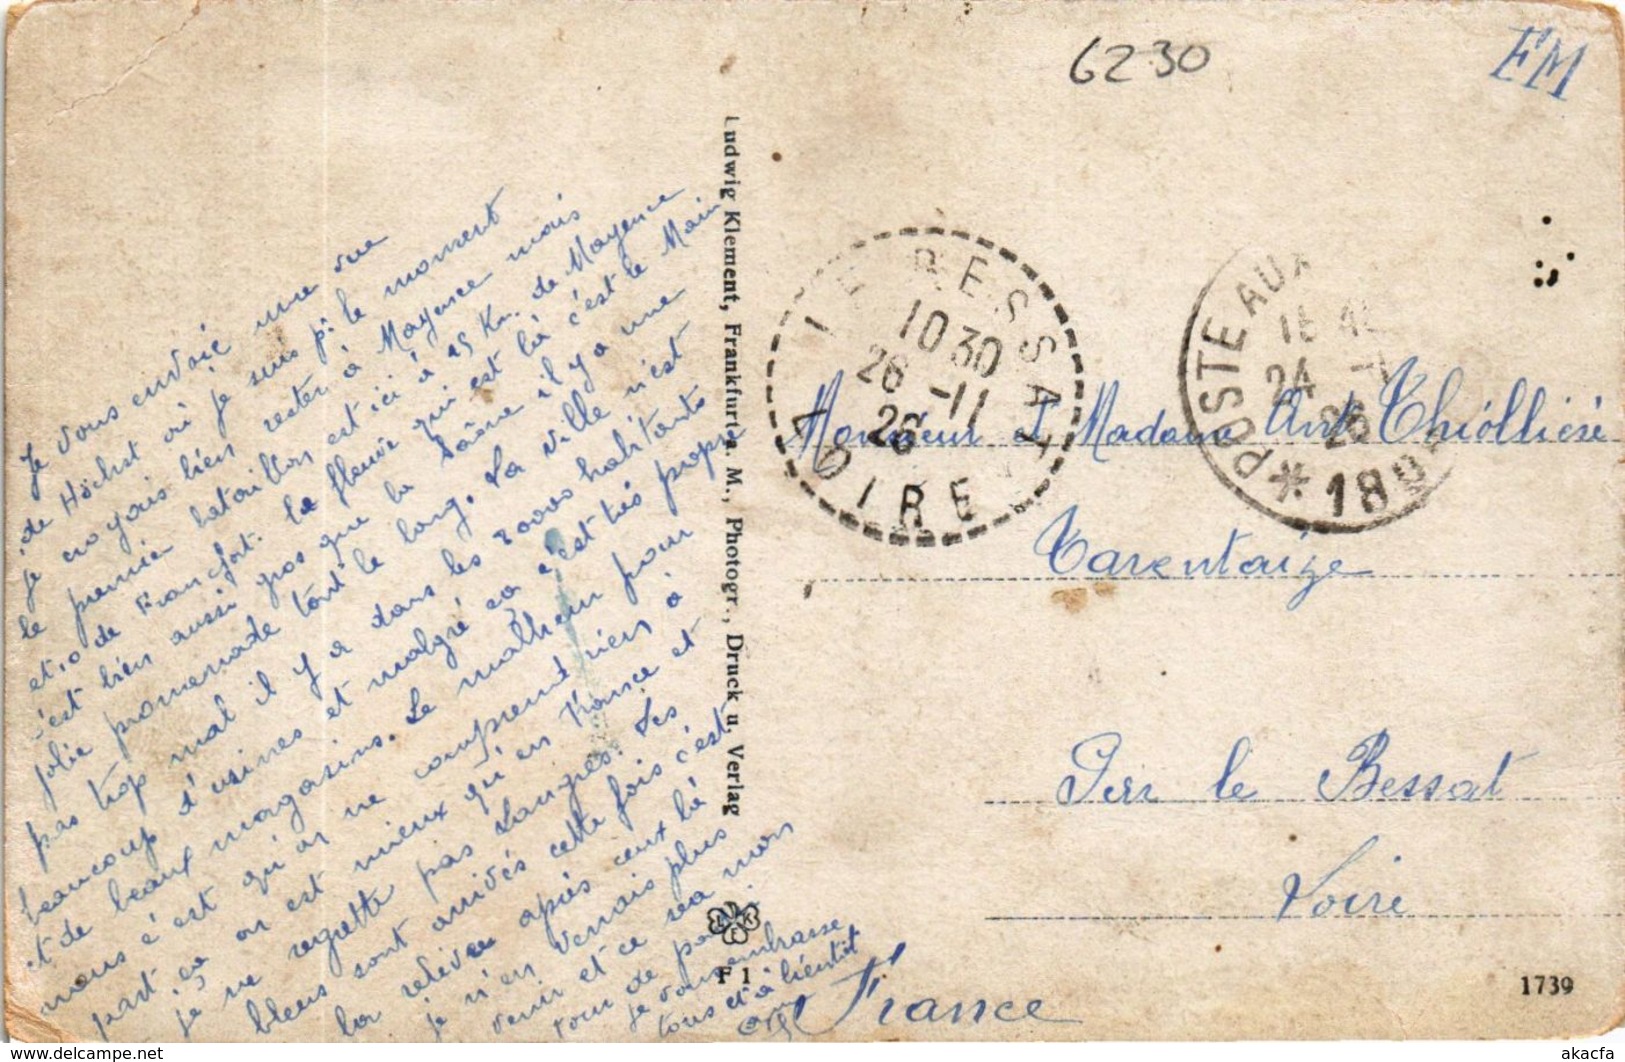 6230
FM
Je vous envoie une vue
de Höchst où je suis pr le moment
je croyais bien rester à Mayence mais
le premier bataillon est ici à 25 Km. de Mayence
et 10 de Francfort. le fleuve qui est là c'est le Main
c'est bien aussi gros que la Saône il y a une
jolie promenade tout le long. La ville n'est
pas trop mal il y a dans les 30000 habitants
beaucoup d'usines et malgré ça c'est très propre
et de beaux magasins. Le malheur pour
nous c'est qu'on ne comprend rien à
part ça on est mieux qu'en France et
je ne regrette pas Langres. Les
bleus sont arrivés cette fois c'est
la relève après ceux là
je n'en verrais plus
venir et ce sera mon
tour de partir
je vous embrasse
tous et à bientôt
Ludwig Klement, Frankfurt a. M., Photogr., Druck u. Verlag
F 1
1739
LE BESSAT
10 30
26 -11
26
LOIRE
POSTE AUX
24
26
*18
Monsieur et Madame Ant Thiollière
Tarentaize
Per le Bessat
Loire
France
akacfa